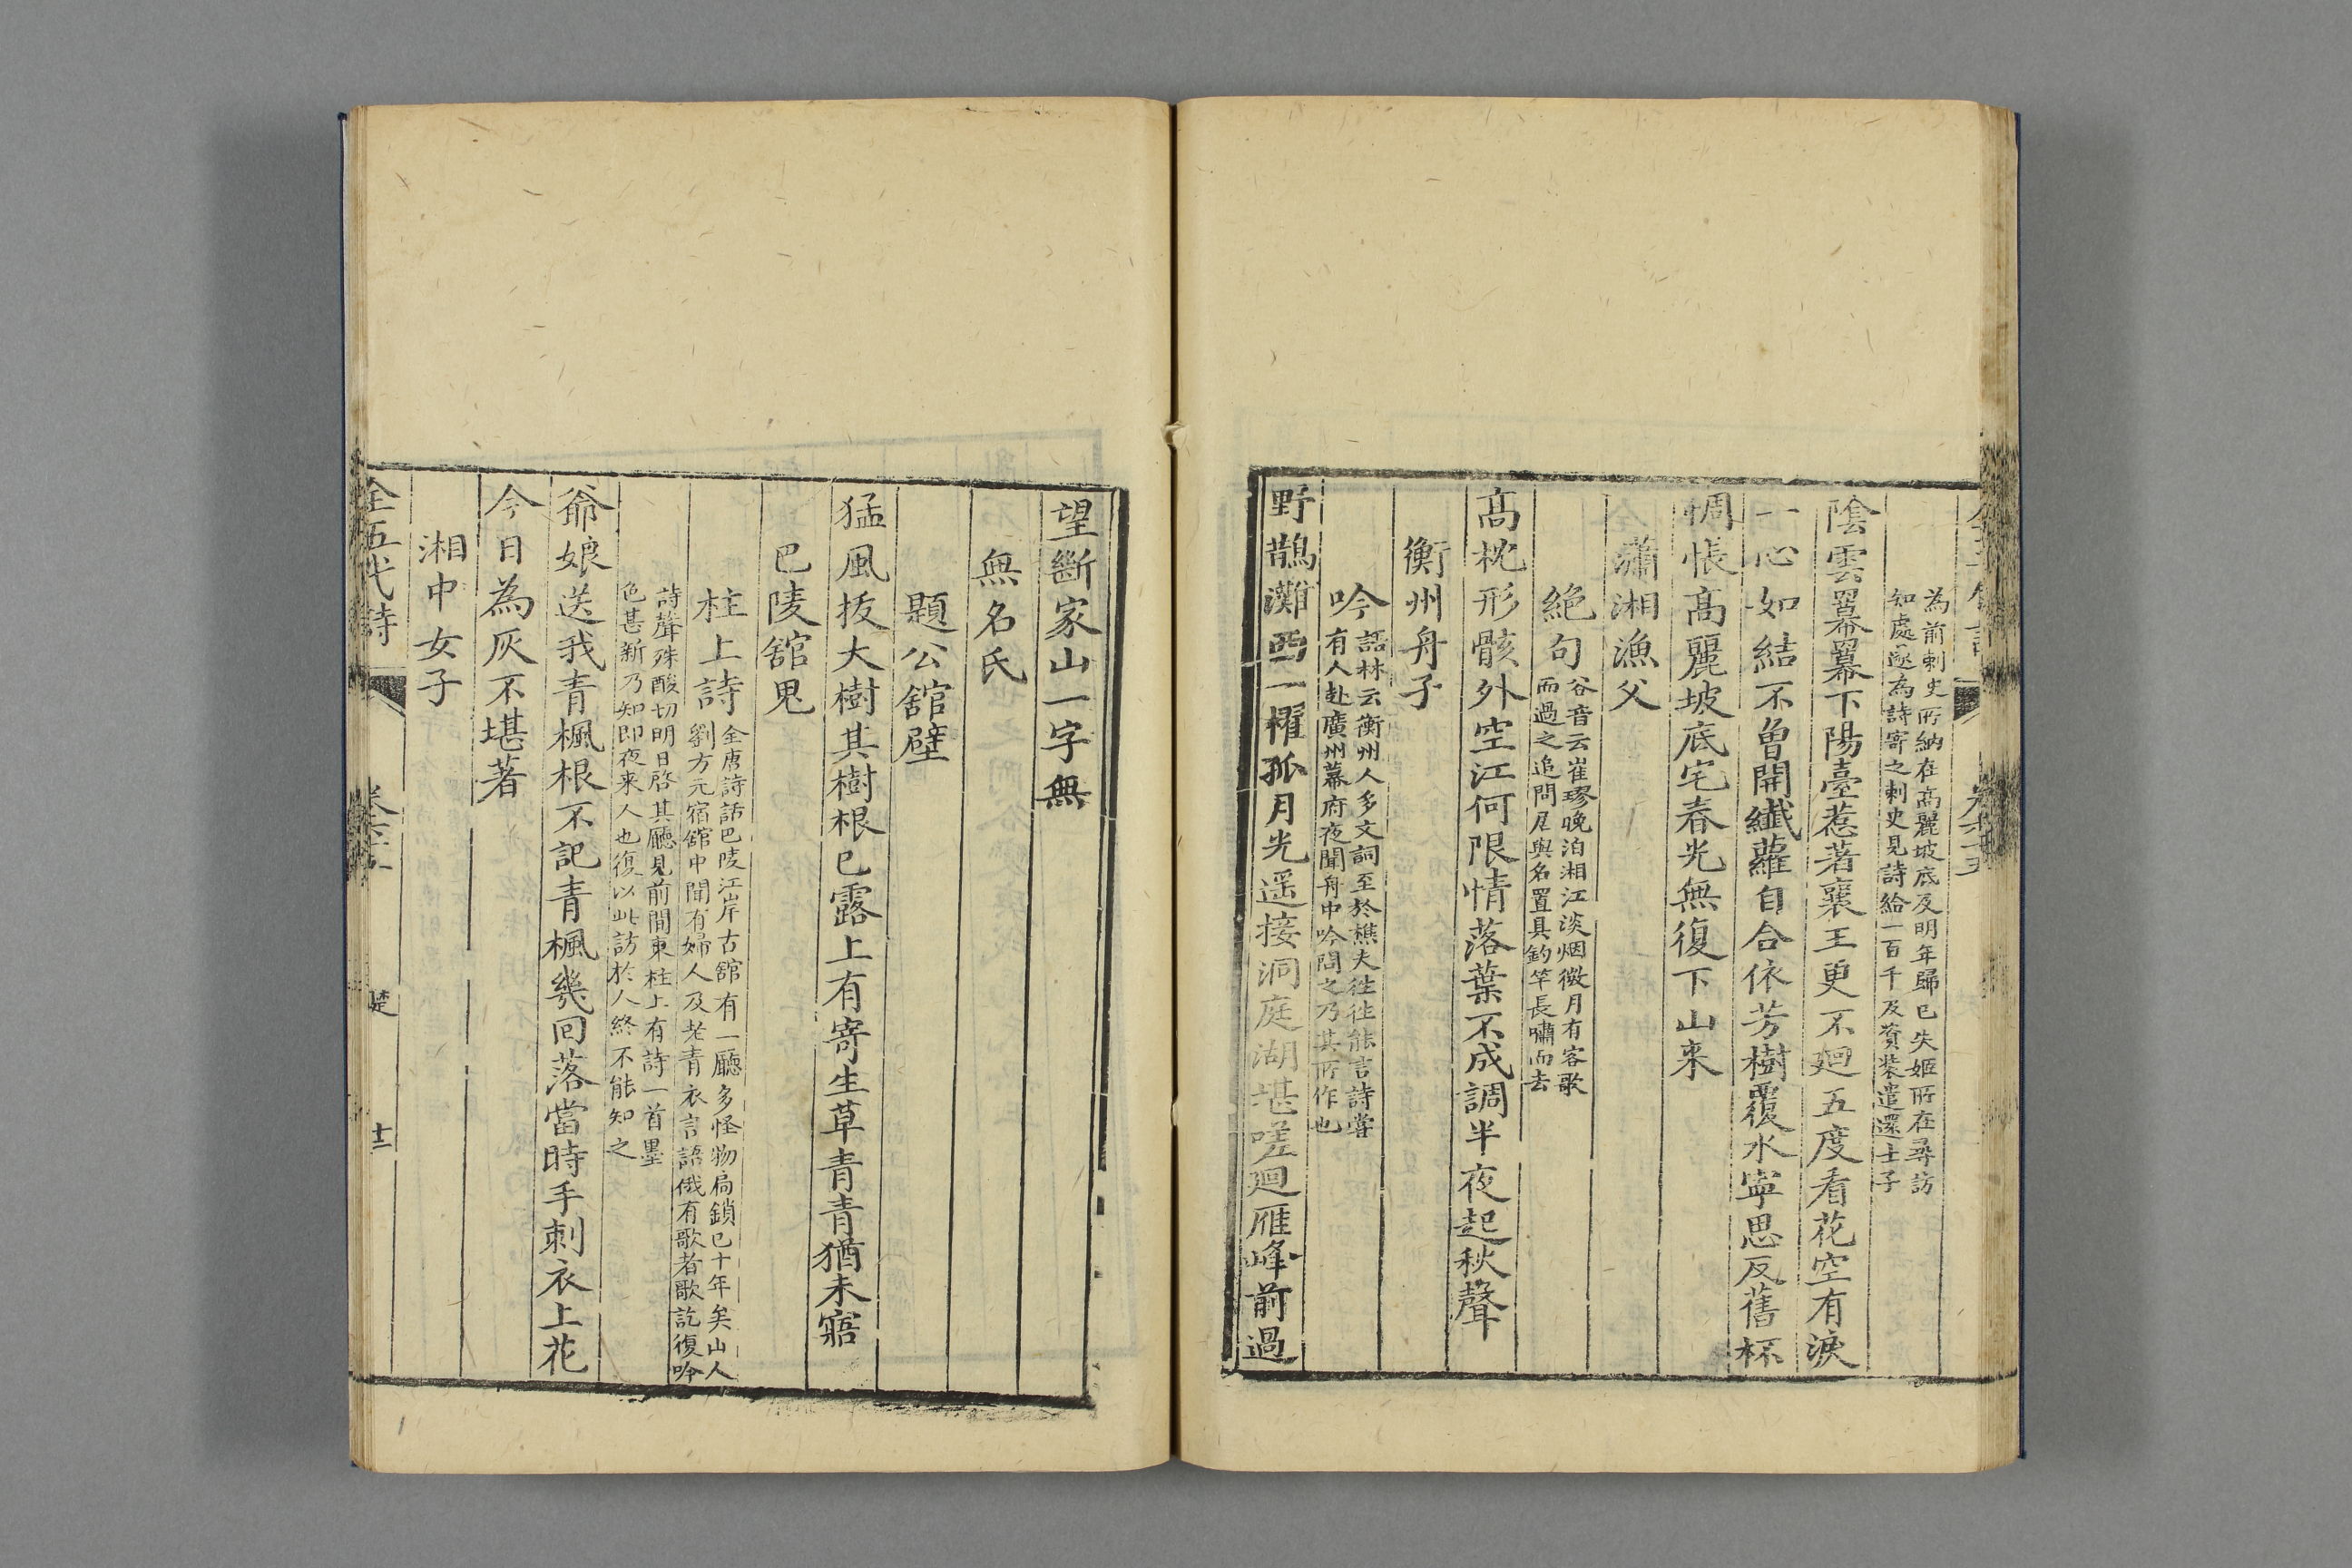 為前刺史所納在高麗坡底及明年歸已失姬所在尋訪
知處遂為詩寄之刺史見詩給一百千及資裝遣還士子
陰雲羃羃下陽臺惹著襄王更不廻五度看花空有淚
一心如結不曽開纖蘿自合依芳樹覆水寧思反舊杯
惆悵髙麗坡底宅春光無復下山来
瀟湘漁父
絶句谷音云崔璆晚泊湘江淡烟微月有客歌
而過之追問居與名置具釣竿長嘯而去
髙枕形骸外空江何限情落葉不成調半夜起秋聲
衡州舟子
吟語林云衡州人多文詞至於樵夫徃徃能言詩嘗
有人赴廣州幕府夜聞舟中吟問之乃其所作也
野鵲灘西一櫂孤月光遥接洞庭湖堪嗟廻雁峰前過
望斷家山一字無
無名氏
題公舘壁
猛風拔大樹其樹根已露上有寄生草青青猶未寤
巴陵舘鬼
柱上詩全唐詩話巴陵江岸古舘有一廳多怪物扃鎖已十年矣山人
劉方元宿舘中聞有婦人及老青衣言語俄有歌者歌訖復吟
詩聲殊酸切明日啓其廳見前間東柱上有詩一首墨
色甚新乃知即夜来人也復以此訪於人終不能知之
爺娘送我青楓根不記青楓幾回落當時手刺衣上花
今日為灰不堪著
湘中女子
全五代詩
楚
十二